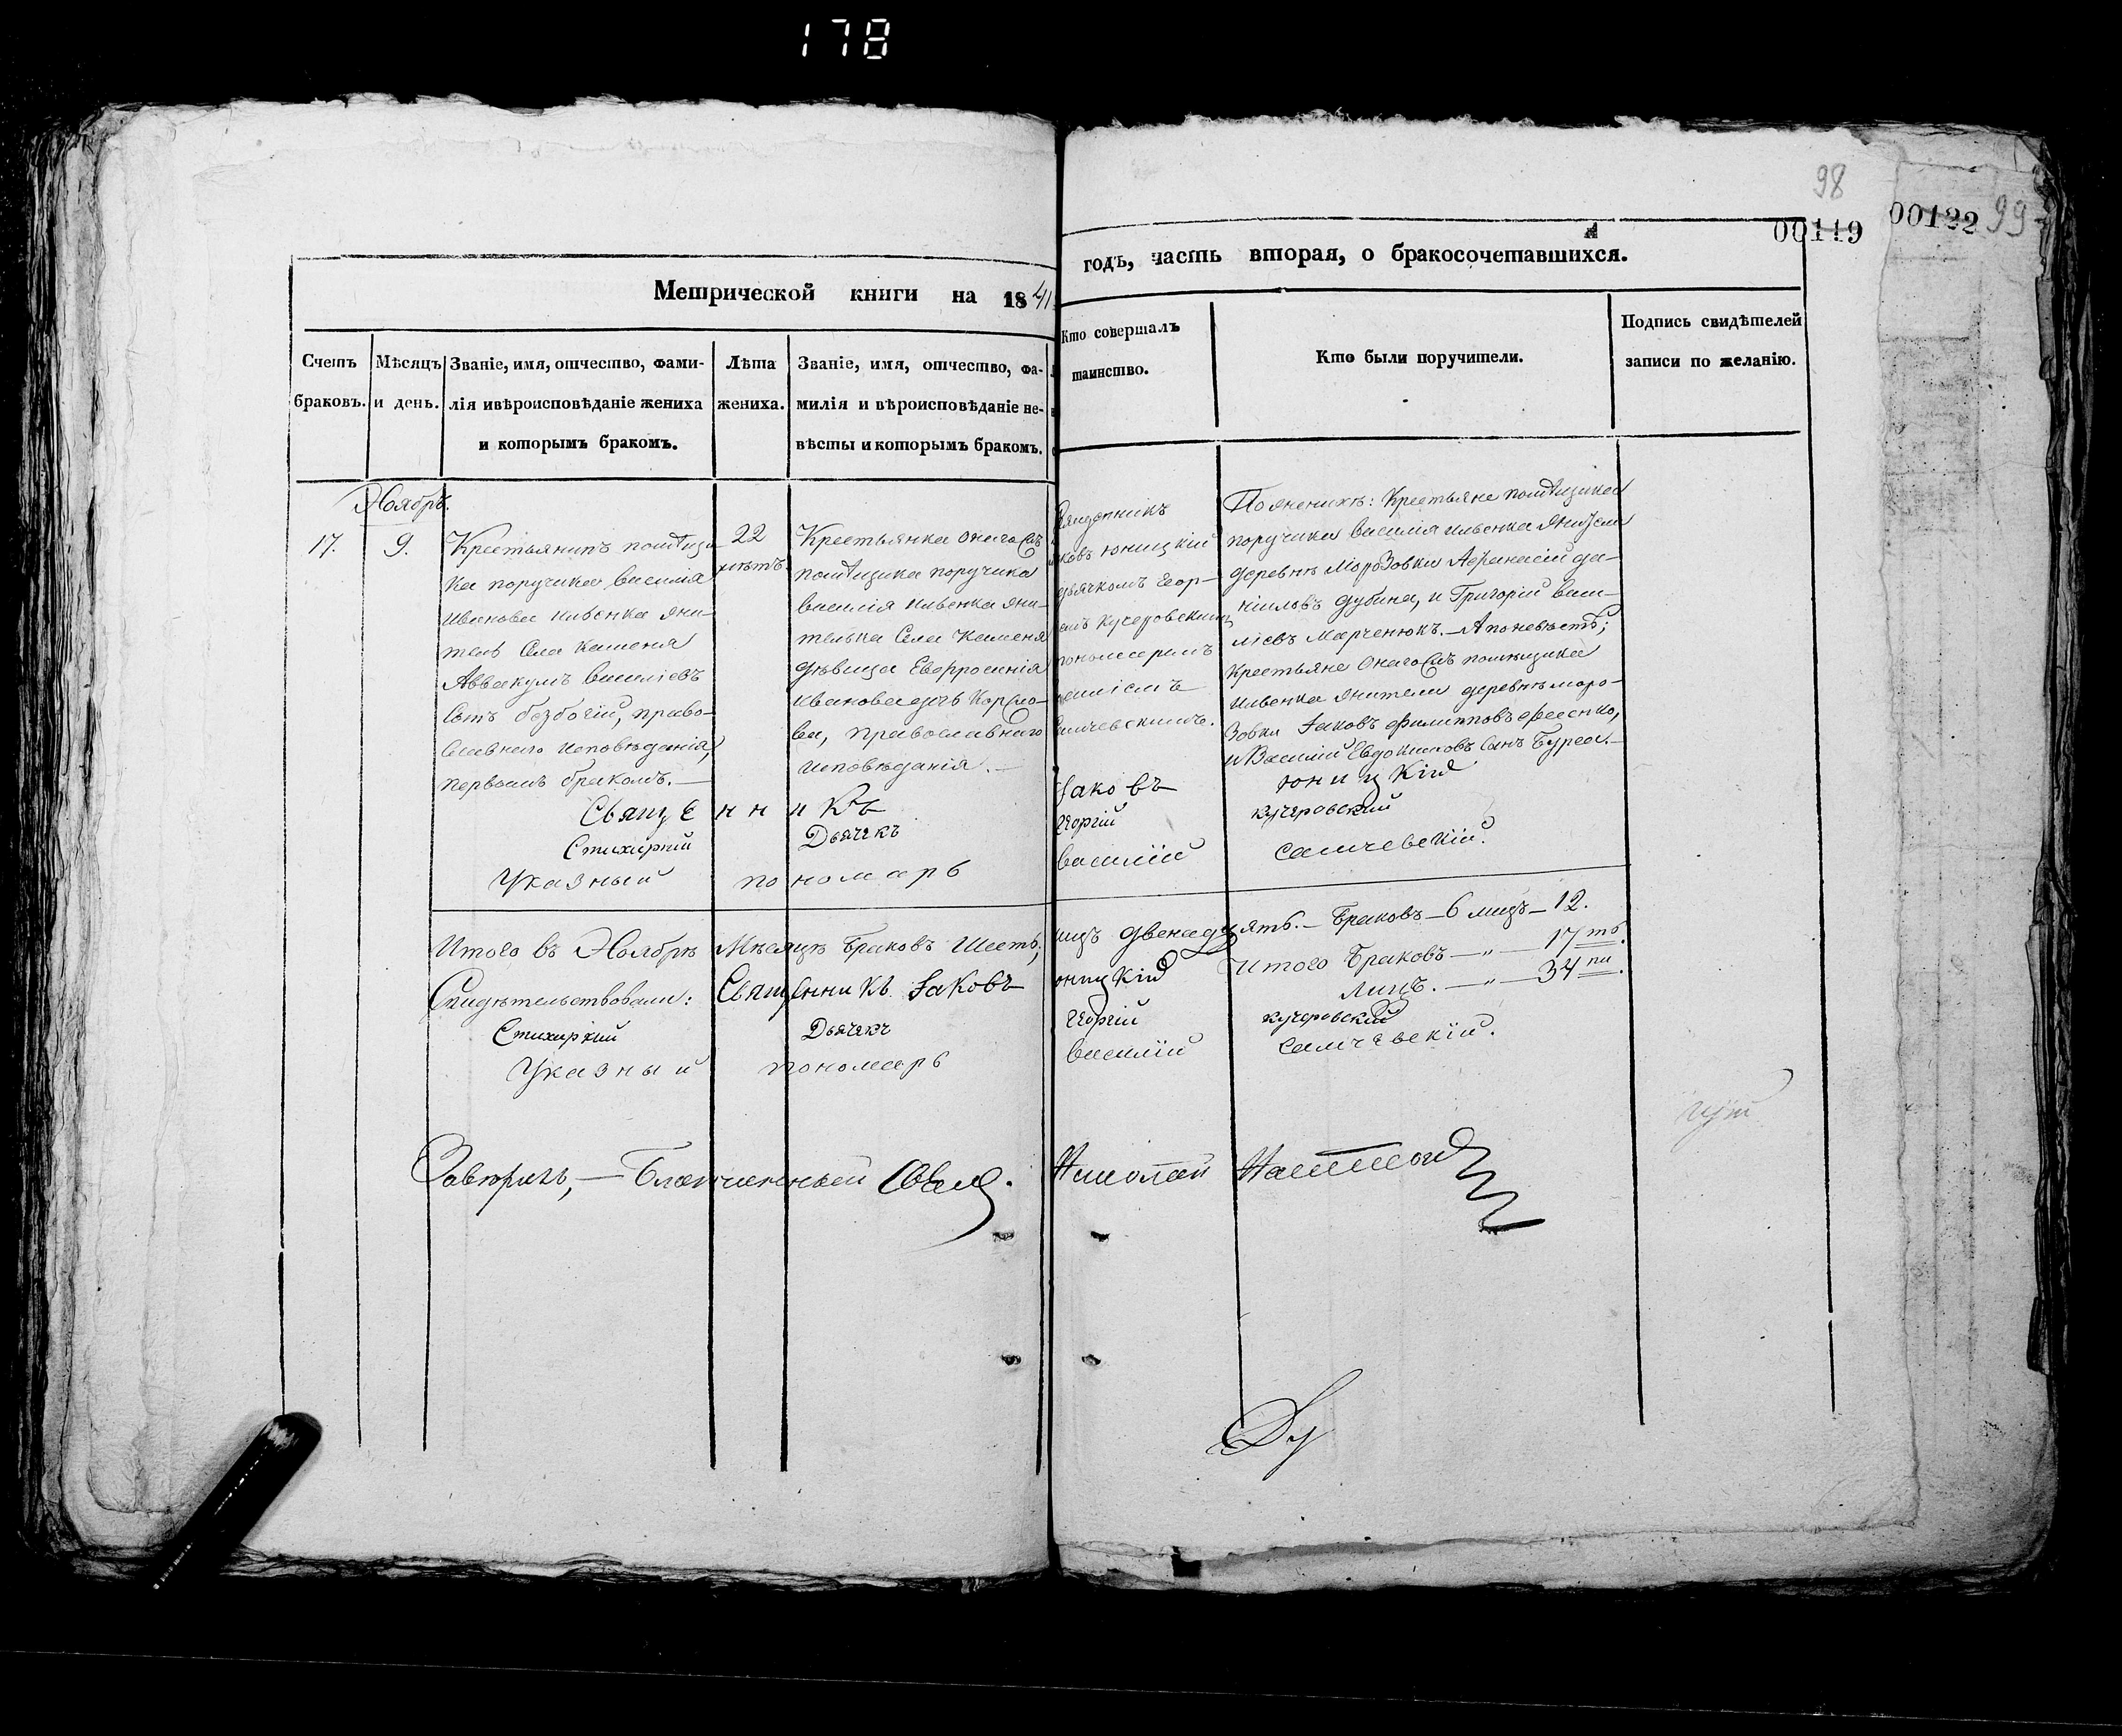 178
98
00119
00122 99
Метрической книги на 1841
годъ, часть вторая, о бракосочетавшихся.
Счетъ браковъ.
Мѣсяцъ и день.
Званіе, имя, отчество, фами-
лія ивѣроисповѣданіе жениха
и которымъ бракомъ.
Лѣта
жениха.
Званіе, имя, отчество, фа-
милія и вѣроисповѣданіе не-
вѣсты и которымъ бракомъ.
Кто совершалъ
таинство.
Кто были поручители.
Подпись свидѣтелей
записи по желанію.
Ноябрь.
17.
9.
Крестьянинъ помѣщи-
ка поручика Василія
Иванова Ильенка жи-
тель Села Каменя
Аввакумъ Василіевъ
Сынъ безбогій, право-
славнаго исповѣданія,
первымъ бракомъ.—
22
лѣтъ.
Крестьянка Онагожъ
помѣщика поручика
Василія Ильенка жи-
телька Села Каменя
дѣвица Евфросинія
Иванова дочь
ва, православнаго
исповѣданія.—
Священникъ
Іаковъ Юницкій
дьячкомъ Геор-
гіемъ Кучеровскимъ
пономаремъ
Василіемъ
Самчевскимъ.
По женихѣ: Крестьяне помѣщика
поручика Василія Ильенка жители
деревнѣ Морозовки Афанасій Да-
ніиловъ Дубина, и Григорій Васи-
ліевъ Марченюкъ.—А по невѣстѣ;
Крестьяне Онагожъ помѣщика
Ильенка жители деревнѣ Моро-
зовки Іаковъ Филипповъ
и Василій Евдокимовъ Сынъ Бурса.—
Священникъ Іаковъ Юницкій
Стихирный Дьячекъ Георгій Кучеровскій
Указный пономарь Василій Самчевскій.
Итого въ Ноябрѣ Мѣсяцѣ Браковъ Шесть, лицъ двенадцять.—Браковъ—6 лицъ—12.
Итого Браковъ—„—17ть.
Лицъ.—„—34ри.
Свидѣтельствовали: Священникъ Іаковъ Юницкій
Стихирный Дьячекъ Георгій Кучеровскій
Указный пономарь Василій Самчевскій.
Николай